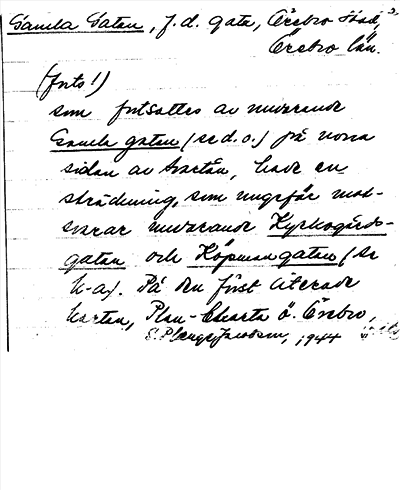 Gamla Gatan, f.d. gata, Örebro stad, 3.
Örebro län.
(forts!)
som fortsattes av nuvarande
Gamla gatan (se d.o.) på norra
sidan av Svartån, hade en
sträckning, som ungefär mot-
svarar nuvarande Kyrkogårds-
gatan och Köpmangatan (se
k-a). På den först citerade
kartan, Plan-Charta ö. Örebro,
S. Jacobsson, 1944